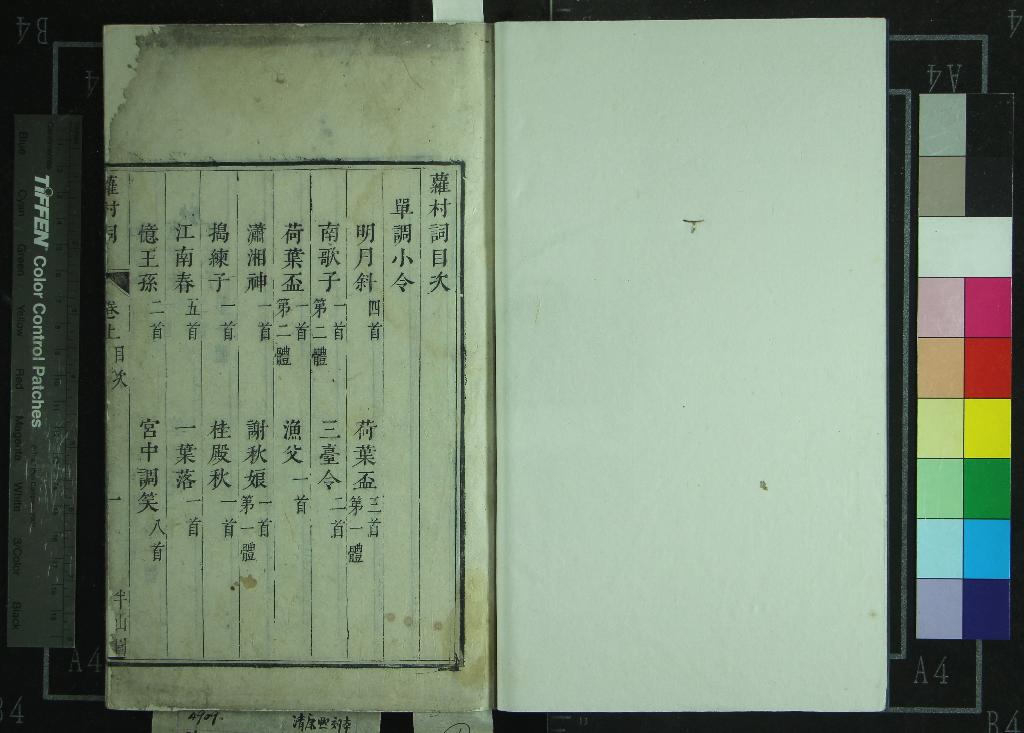 蘿村詞目次
單調小令
明月斜 四首
荷葉盃 三首 第一體
南歌子 一首 第二體
三臺令 二首
荷葉盃 一首 第二體
漁父 一首
瀟湘神 一首
謝秋娘 一首 第一體
搗練子 一首
桂殿秋 一首
江南春 五首
一葉落 一首
憶王孫 二首
宮中調笑 八首
蘿村詞 卷上 目次 一
TIFFEN Color Control Patches
Blue Cyan Green Yellow Red Magenta White 3/Color Black
A4
A4
A4
B4
B4
4909.
清康熙刻本